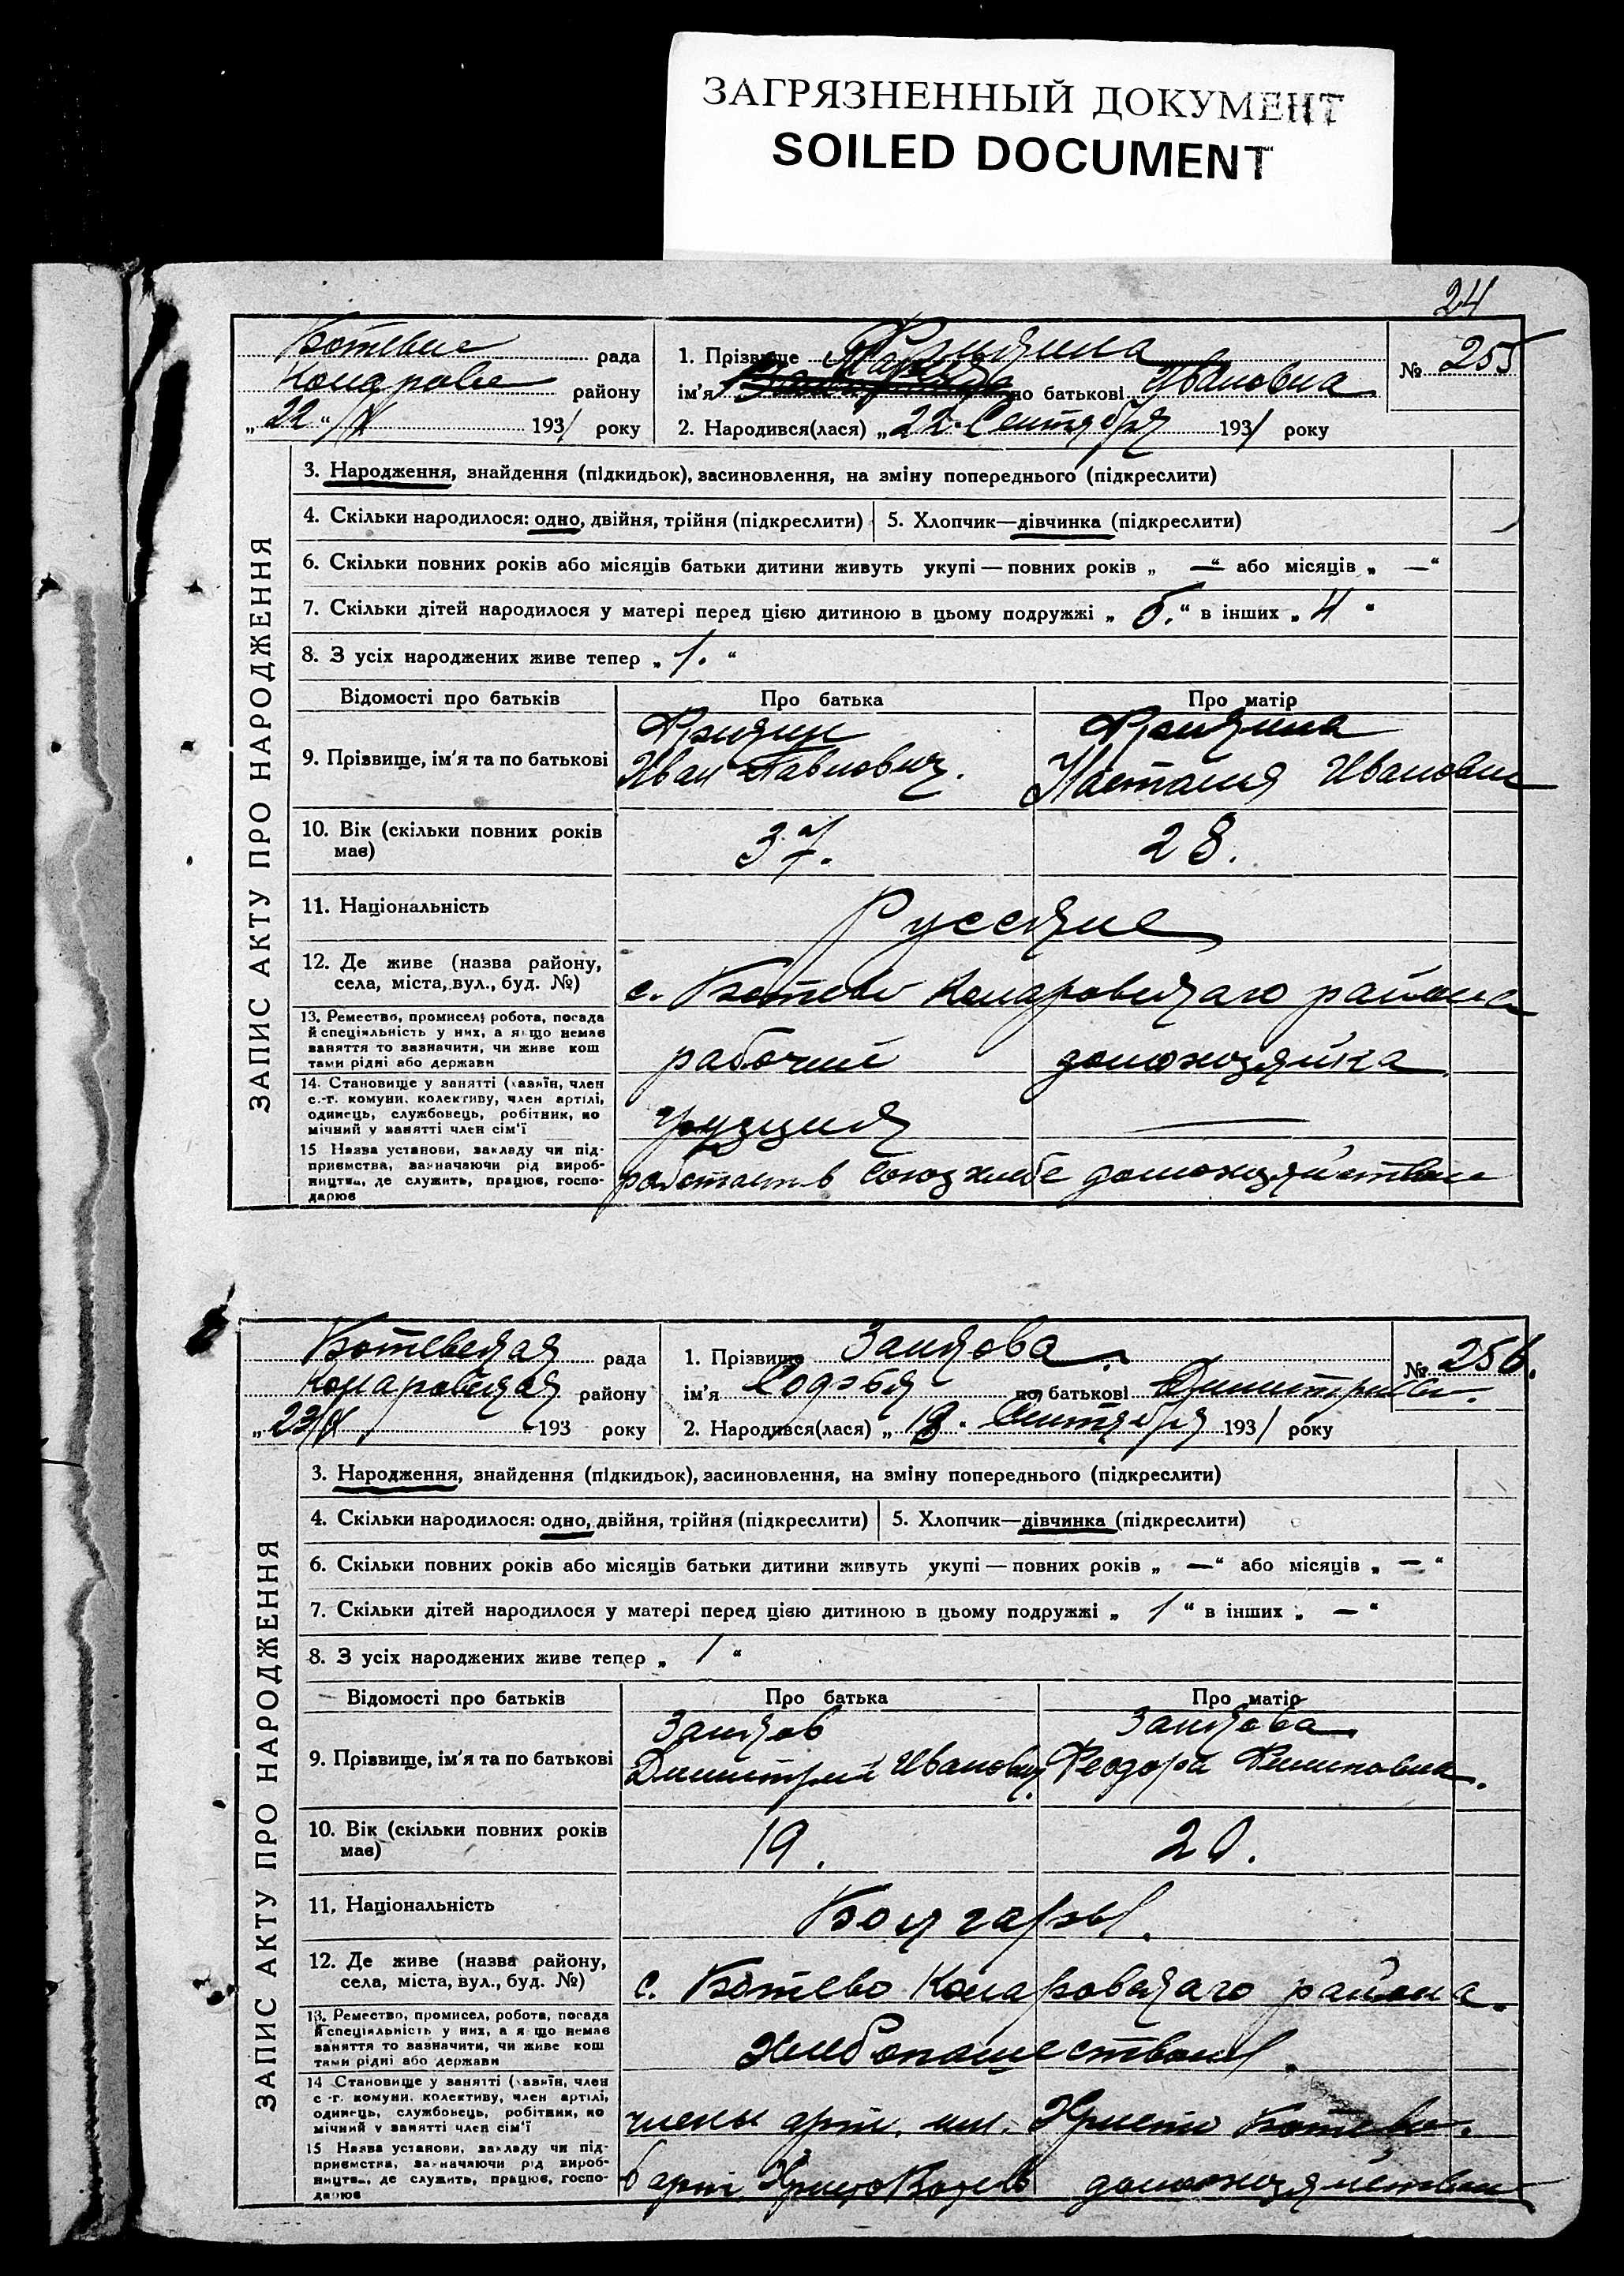 ЗАГРЯЗНЕННЫЙ ДОКУМЕНТ
SOILED DOCUMENT
24
рада
1. Прізвище
№ 255
району
ім'я по батькові Ивановна
„22“/IX 1931 року
2. Народився(лася) „22“ Сентября 1931 року
ЗАПИС АКТУ ПРО НАРОДЖЕННЯ
3. Народження, знайдення (підкидьок), засиновлення, на зміну попереднього (підкреслити)
4. Скільки народилося: одно, двійня, трійня (підкреслити)
5. Хлопчик—дівчинка (підкреслити)
6. Скільки повних років або місяців батьки дитини живуть укупі — повних років „ —“ або місяців „ —“
7. Скільки дітей народилося у матері перед цією дитиною в цьому подружжі „ 5. “ в інших „ 4 “
8. З усіх народжених живе тепер „ 1. “
Відомості про батьків
Про батька
Про матір
9. Прізвище, ім'я та по батькові
Иван Павлович.
Настасия Ивановна
10. Вік (скільки повних років має)
37.
28.
11. Національність
Русские
12. Де живе (назва району, села, міста, вул., буд. №)
с. Ботево Коларовскаго района
13. Ремество, промисел, робота, посада й спеціяльність у них, а якщо немає заняття то зазначити, чи живе коштами рідні або держави
рабочий
домохозяйка
14. Становище у занятті (хазяїн, член с.-г. комуни, колективу, член артілі, одинець, службовець, робітник, помічний у занятті член сім'ї
—
15 Назва установи, закладу чи підприємства, зазначаючи рід виробництва, де служить, працює, господарює
работает в Союзхлебе
домохозяйством
Ботевская рада
1. Прізвище Заикова
№ 256.
Коларовская району
ім'я Софья по батькові
„23/IX 193 року
2. Народився(лася) „18“ Сентября 1931 року
ЗАПИС АКТУ ПРО НАРОДЖЕННЯ
3. Народження, знайдення (підкидьок), засиновлення, на зміну попереднього (підкреслити)
4. Скільки народилося: одно, двійня, трійня (підкреслити)
5. Хлопчик—дівчинка (підкреслити)
6. Скільки повних років або місяців батьки дитини живуть укупі — повних років „ —“ або місяців „ — “
7. Скільки дітей народилося у матері перед цією дитиною в цьому подружжі „ 1 “ в інших „ — “
8. З усіх народжених живе тепер „ 1 “
Відомості про батьків
Про батька
Про матір
9. Прізвище, ім'я та по батькові
Заиков
Димитрий Иванович.
Заикова
Феодора Филиповна.
10. Вік (скільки повних років має)
19.
20.
11. Національність
Болгары.
12. Де живе (назва району, села, міста, вул., буд. №)
с. Ботево Коларовскаго района.
13. Ремество, промисел, робота, посада й спеціяльність у них, а якщо немає заняття то зазначити, чи живе коштами рідні або держави
14 Становище у занятті (хазяїн, член с.-г. комуни, колективу, член артілі, одинець, службовець, робітник, помічний у занятті член сім'ї
члены арт. им. Христо Ботево.
15 Назва установи, закладу чи підприємства, зазначаючи рід виробництва, де служить, працює, господарює
в арт. Христо Ботево
домохозяйством